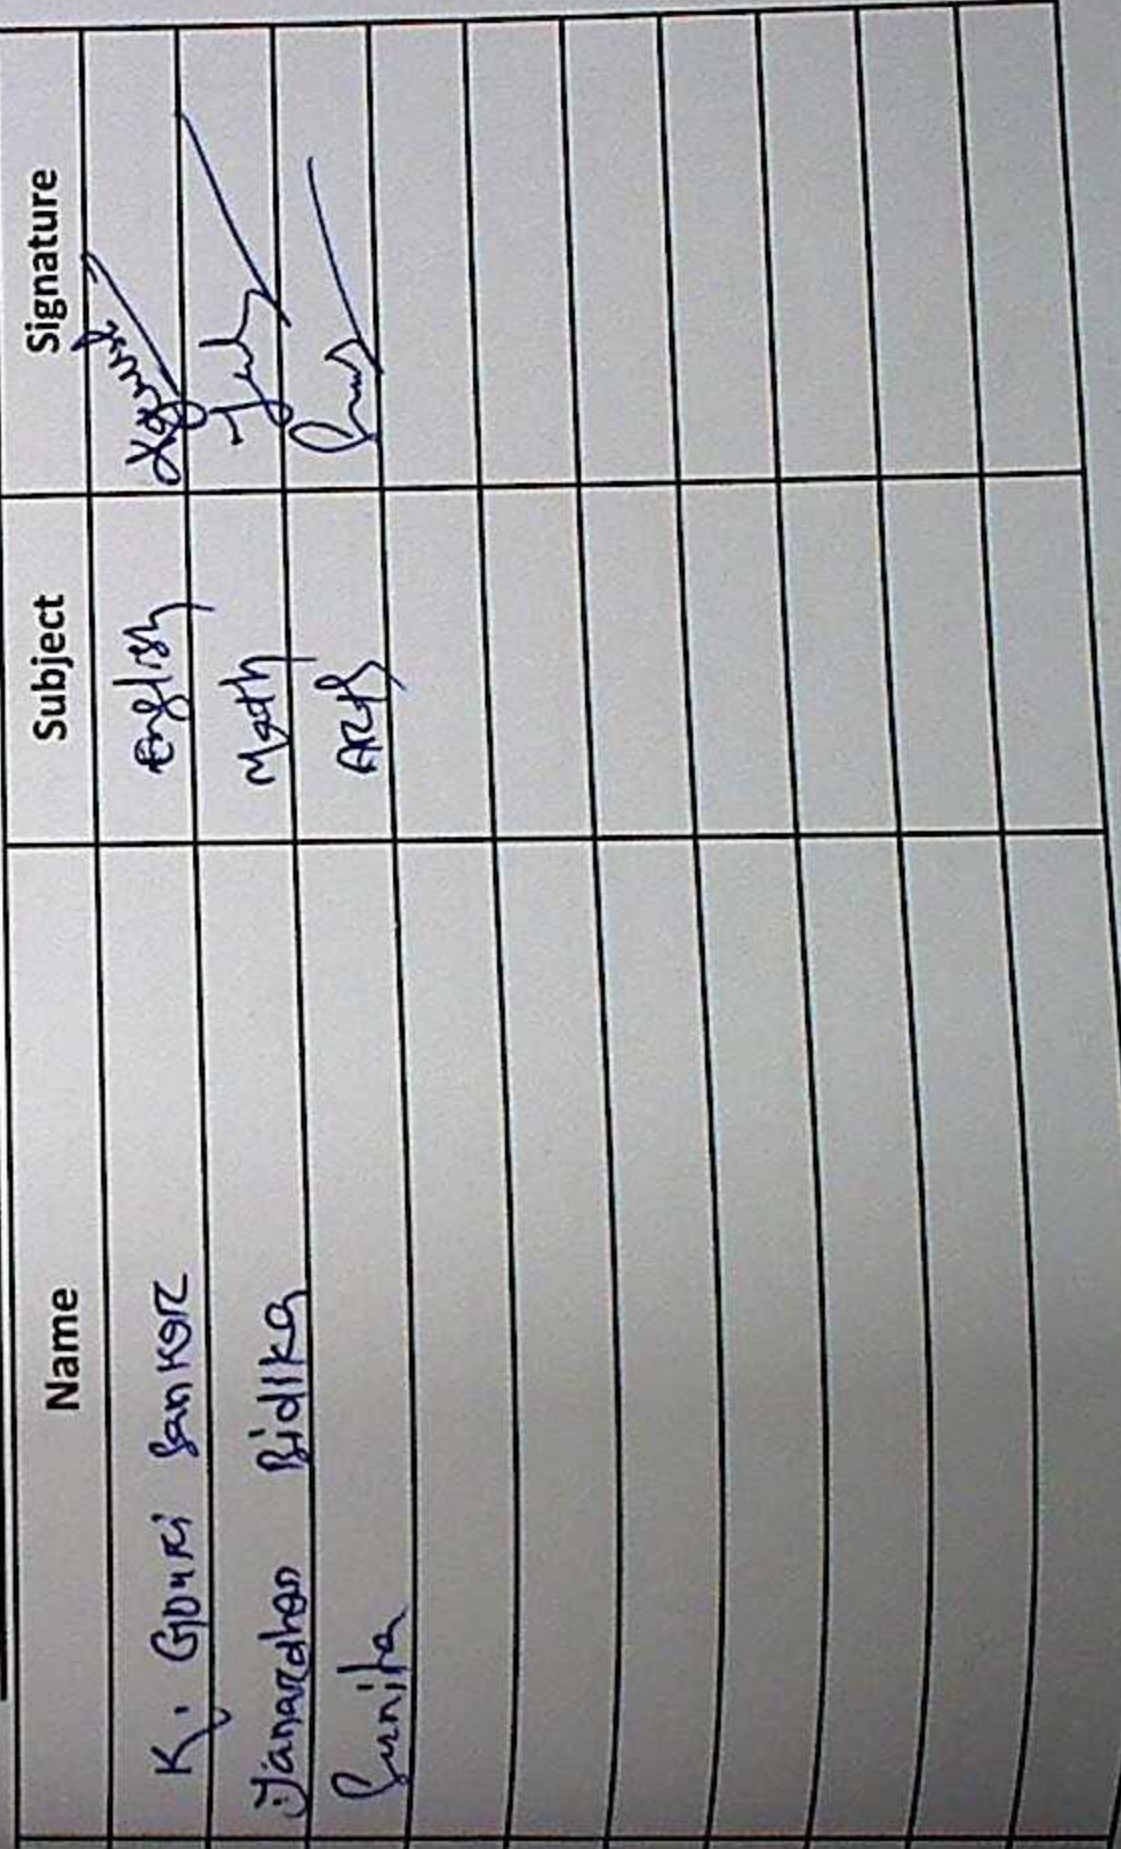 Name Subject Signature
K. Gouri Sankar English
Janardhan Bidika Math
Sunita Arts